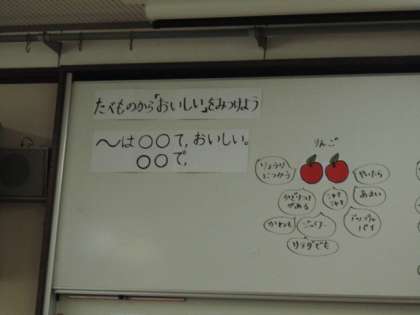 たべものから「おいしい」をみつけよう
〜は○○て、おいしい。
○○で、
りんご
りょうりに
つかう
やいたら
あまい
がある
シャキ
シャキ
アップル
パイ
かわも
ジュース
サラダでも